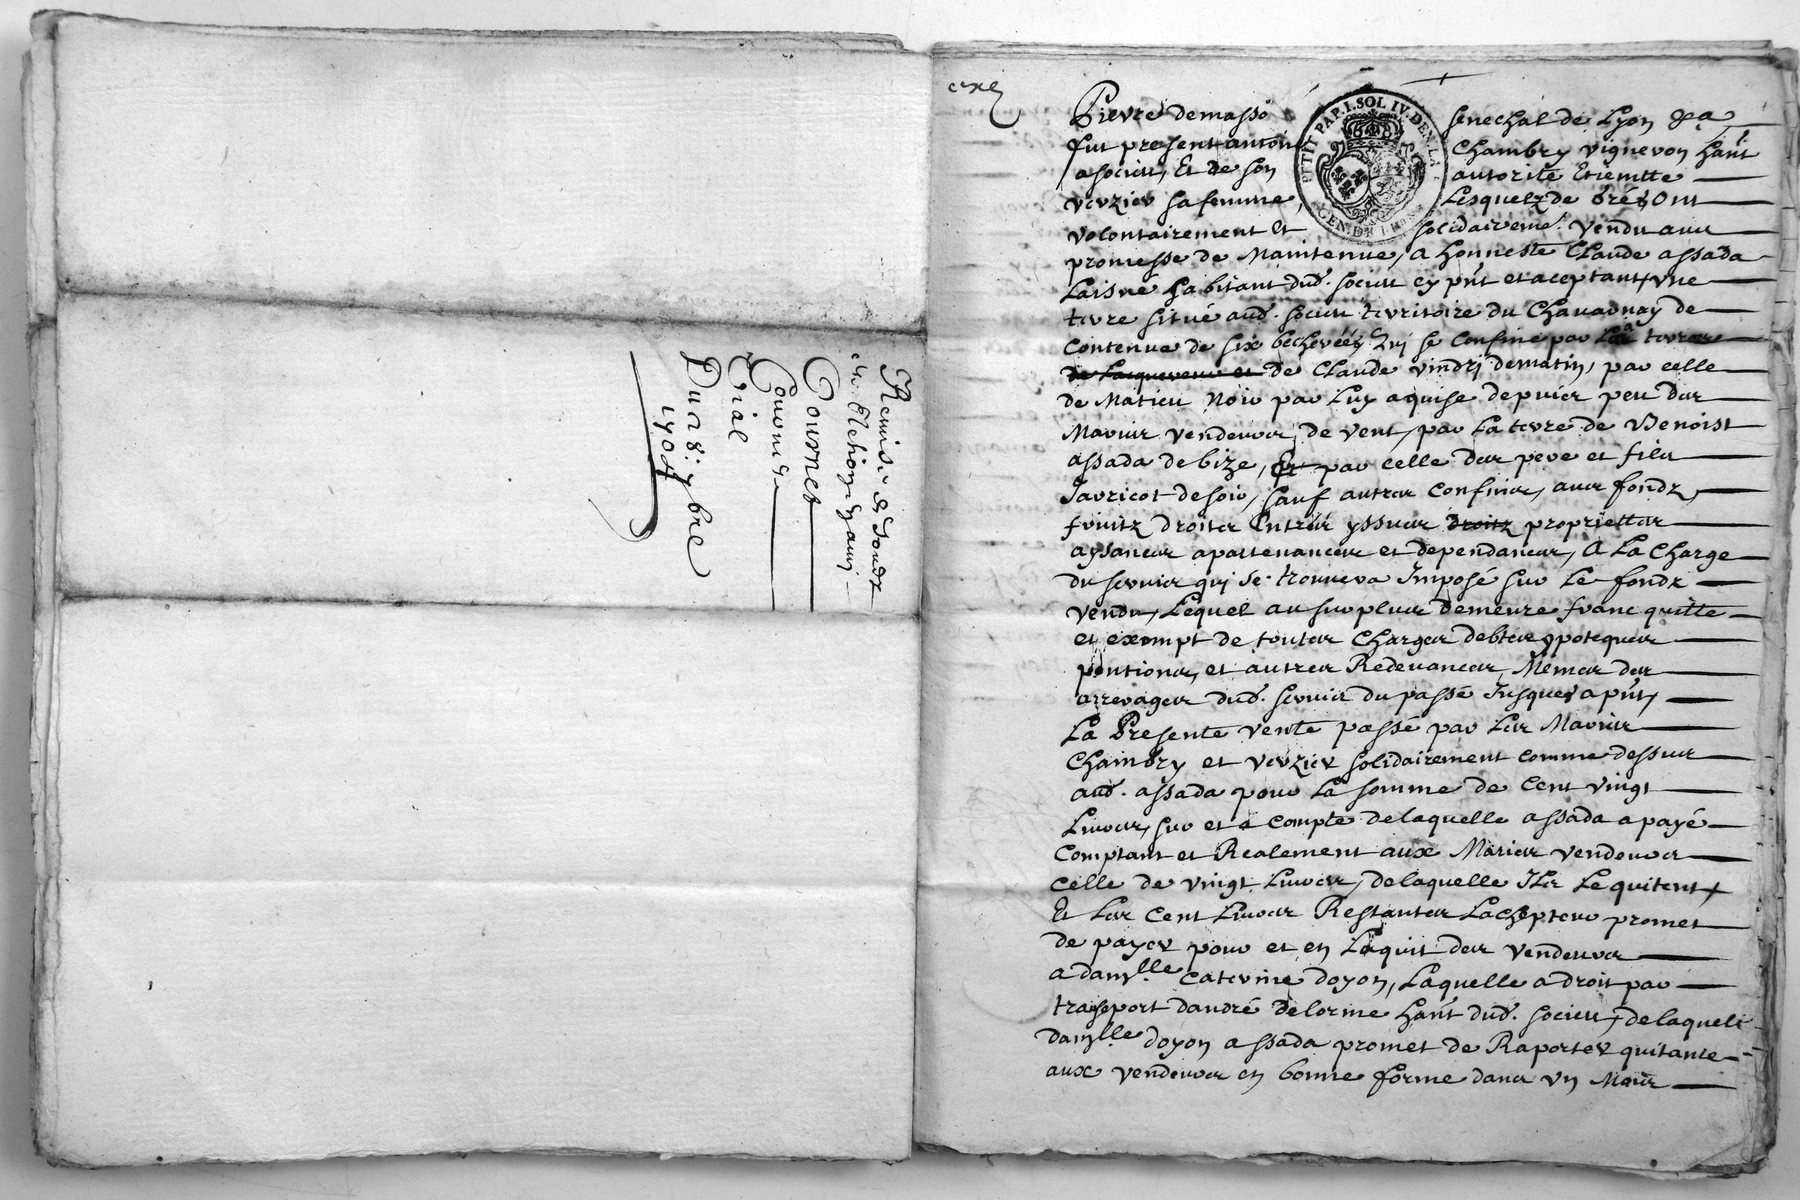 Remise de fondz
Gournet
Du 28: 9bre
1704
Pierre demasso senechal de Lyon &a
fut present antoine Chambry vigneron hãnt
a socieu, Et de son autorité Etiemtte
verzier sa femme, Lesquelz de gré, Ont
volontairement Et solidairemẽ. vendu avec
promesse de Maintenue, a honneste Claude assada
Laisné habitant dud. socieu ey pñt et aceptant, vne
terre situé aud. socieu territoire du Chavadnay de
Contenue de six bicherées Qui se Confine par La terre
de Claude vindry de matin, par celle
de Matieu Noir par Luy aquise depuis peu des
Maries vendeurs, de vent, par La terre de Benoist
assada de bize, par celle des pere et filz
Javricot de soir, sauf autres Confins, avec fondz,
fruitz droites Entrées yssues droitz proprietter
aysances apartenances et dependances, A La Charge
du servis qui se trouvera Imposé sur Le fondz
vendu, Lequel au surplus demeure franc quitte
et exempt de toutes Charges debtes ypoteques
pentions, et autres Redevances, Mémes des
arrerages dud. servis du passé Jusques a pñt,
La Presente vente passé par Les Maries
Chambry et verzier solidairement comme dessus
aud. assada pour La somme de Cent vingt
Livres, sur et a compte de laquelle assada a payé
Comptant et Realement aux Maries vendeurs
celle de vingt Livres, de laquelle Ils Le quitent,
Et Les Cent Livres Restantes Lachepteur promet
de payer pour et en Laquit des vendeurs
a damlle Caterine doyon, Laquelle a droit par
transport dandré delorme hãnt dud. socieu, de laquelle
damlle doyon assada promet de Raporter quitance
aux vendeurs en bonne forme dans vn Mois